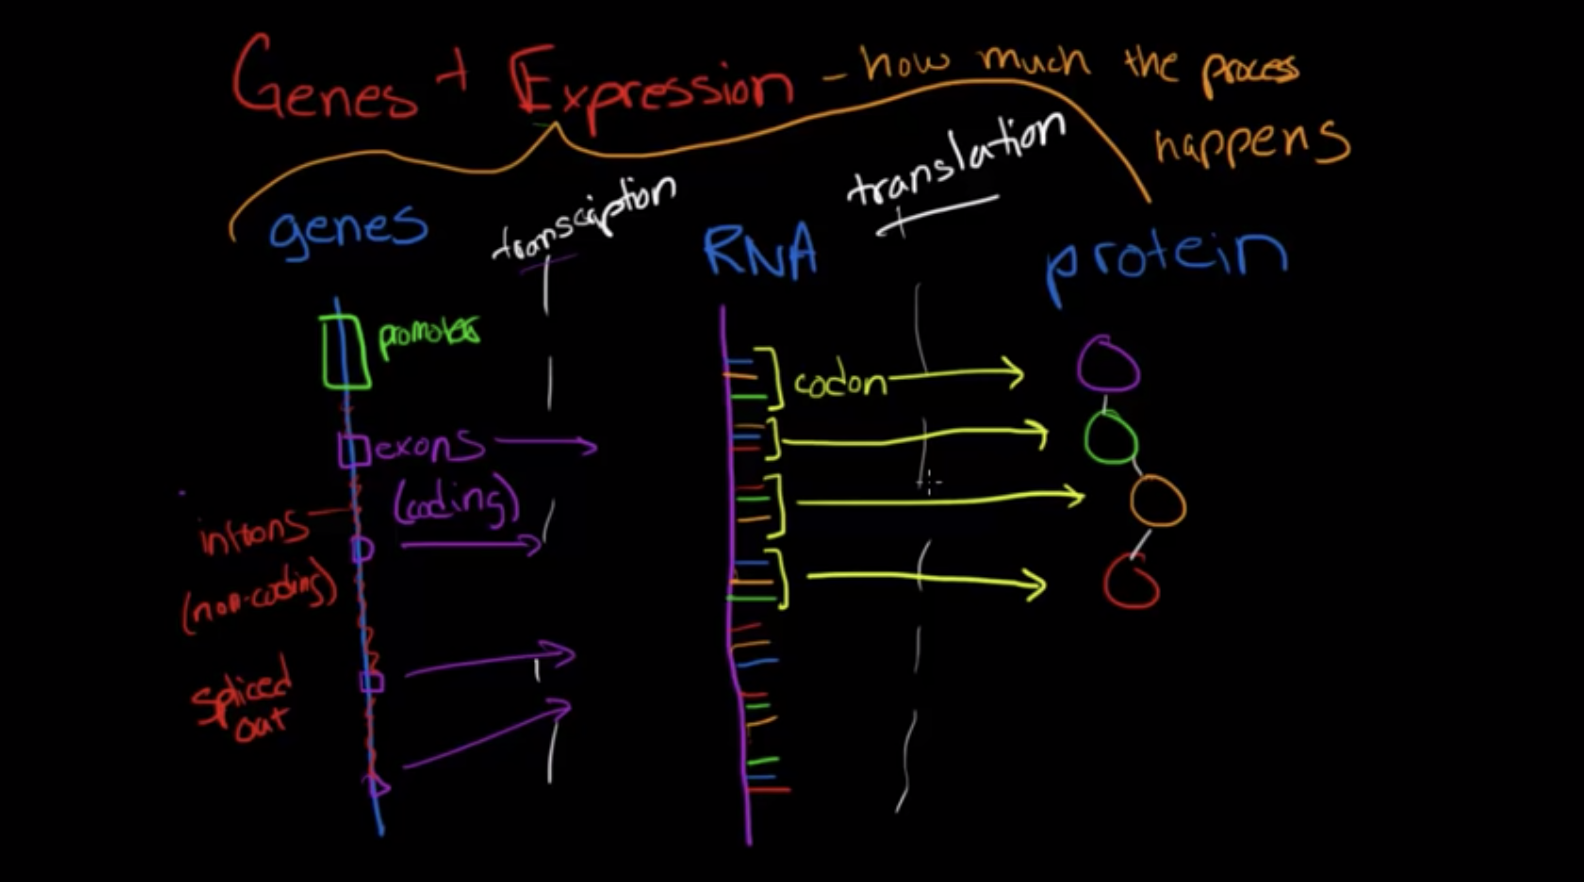 Genes + Expression - how much the process
happens
genes
transciption
RNA
translation
protein
promoter
exons
(coding)
introns
(non-coding)
spliced
out
codon